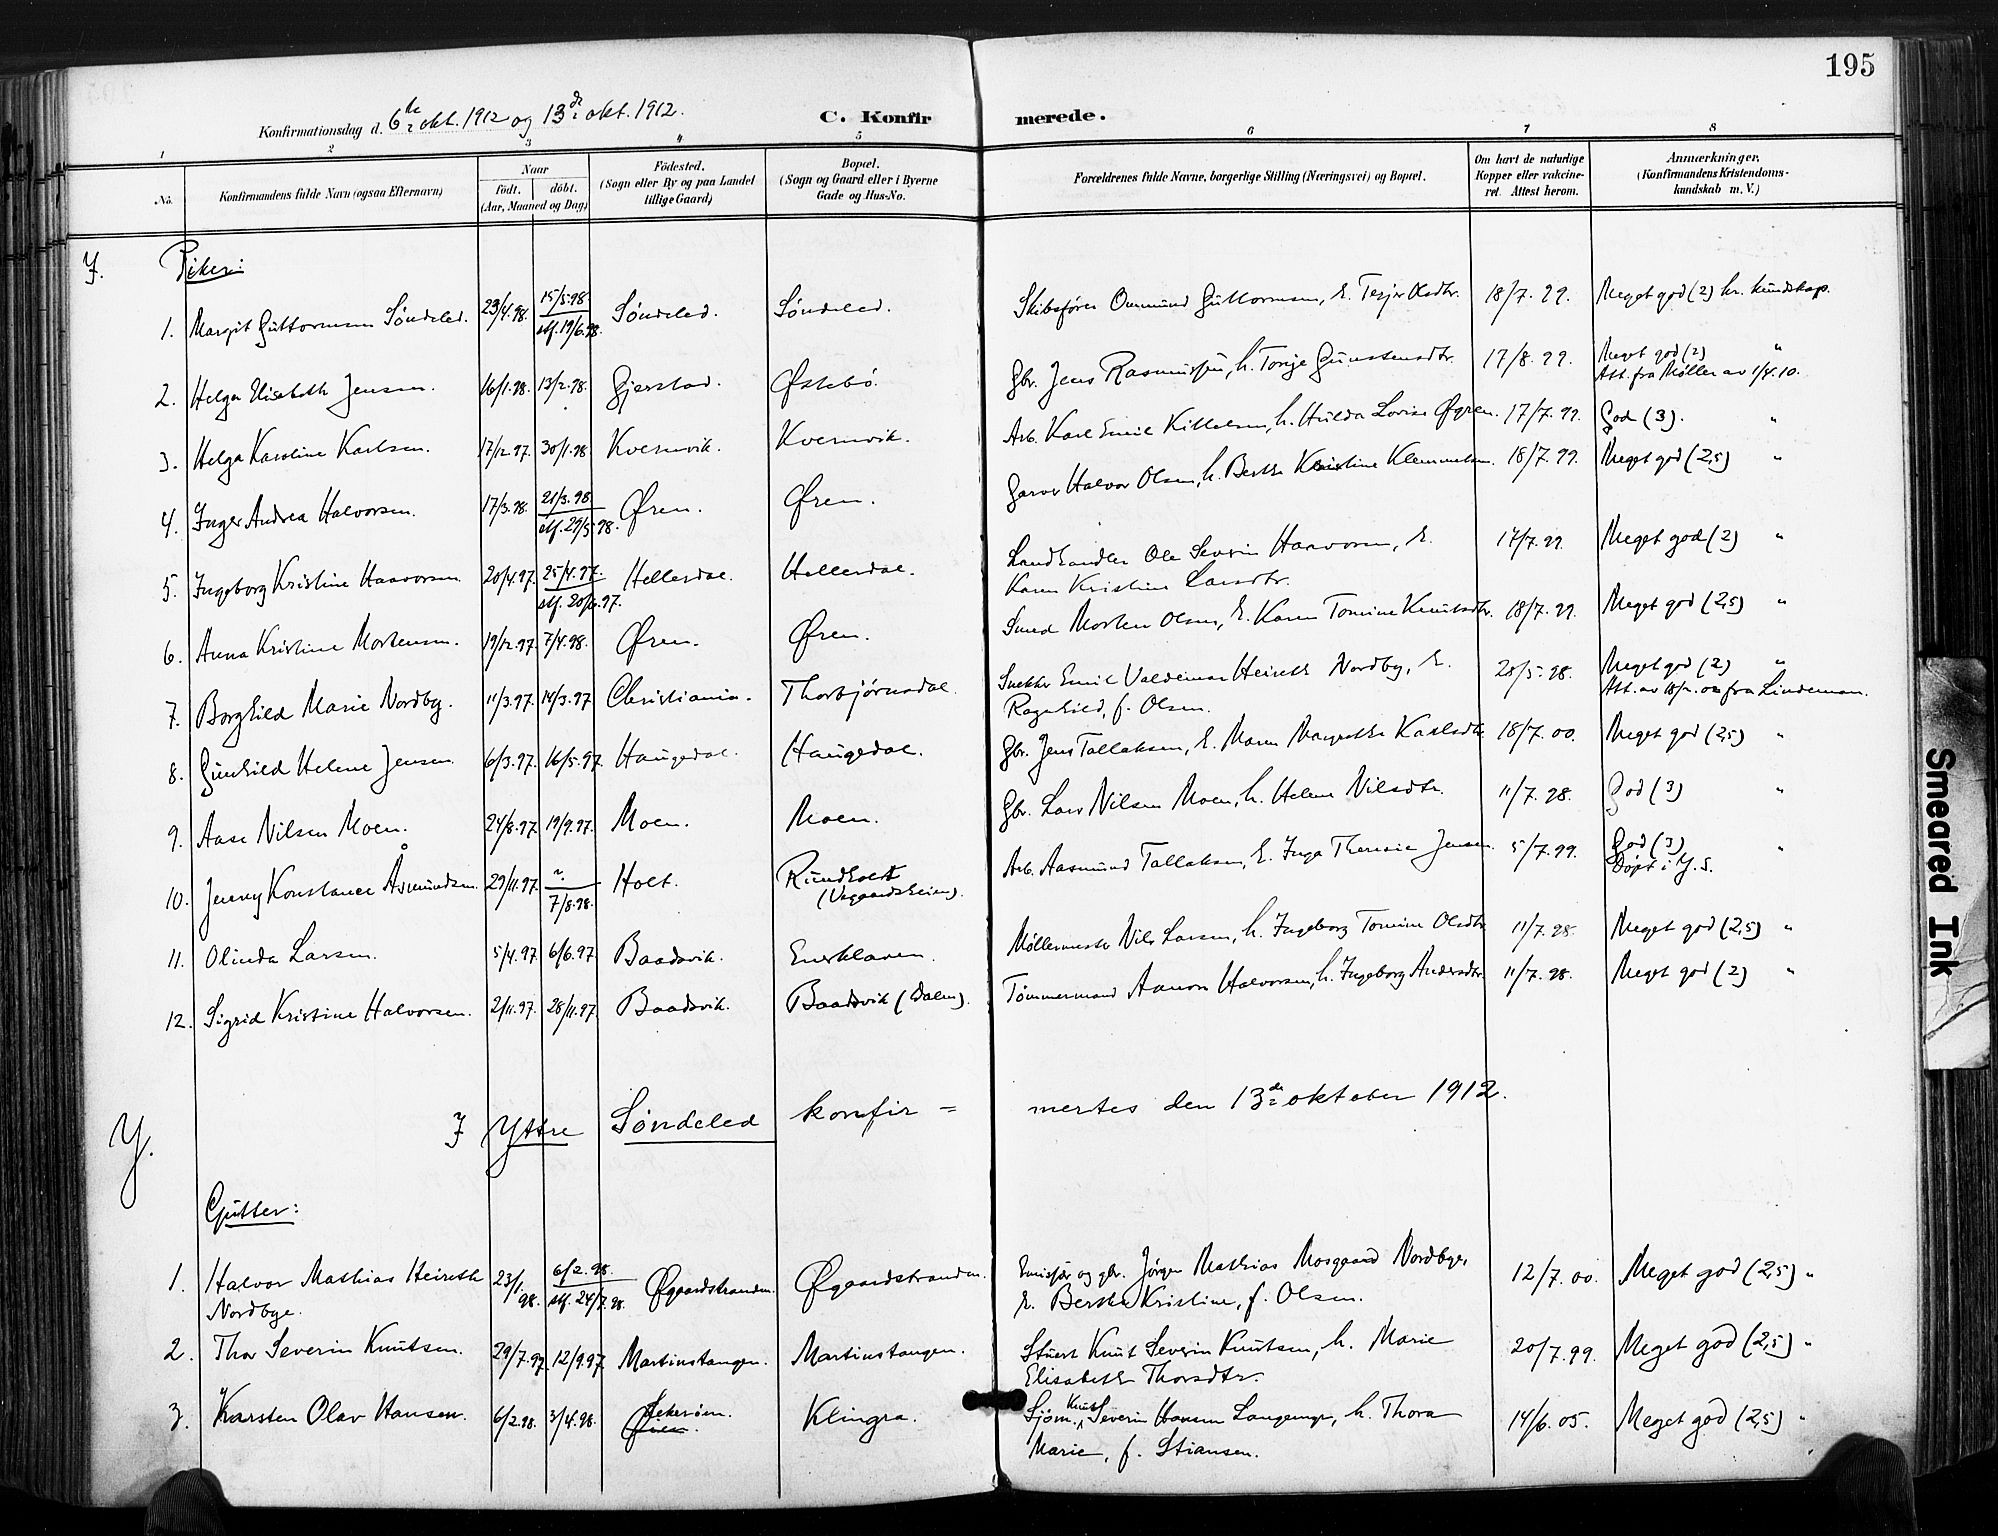 195
Konfirmationsdag d. 6te okt. 1912 og 13de okt. 1912.
C. Konfirmerede.
1 2 3 4 5 6 7 8
No.
Konfirmandens fulde Navn (ogsaa Efternavn)
Naar
födt. döbt.
(Aar, Maaned og Dag)
Födested.
(Sogn eller By og paa Landet
tillige Gaard)
Bopæl.
(Sogn og Gaard eller i Byerne
Gade og Hus-No.
Forældrenes fulde Navne, borgerlige Stilling (Næringsvei) og Bopæl.
Om havt de naturlige
Kopper eller vakcine-
ret. Attest herom.
Anmærkninger.
(Konfirmandens Kristendoms-
kundskab m. V.)
I. Piker:
1. Margit Guttormsen Søndeled. 23/4.98. 15/5.98. stf. 19/6.98. Søndeled. Søndeled. Skibsfører Ommund Guttormsen, h. Terjer Olsdtr. 18/7.99. Meget god (2) kr. kundskap.
2. Helga Elisabeth Jensen. 16/1.98. 13/2.98. Gjerstad. Østebø. Gbr. Jens Rasmussen, h. Tonje Gunstensdtr. 17/8.99. Meget god (2) "
Att. fra Møller av 1/4.10.
3. Helga Karoline Karlsen. 17/12.97. 30/1.98 Kvernvik. Kvernvik. Arb. Karl Emil Kittelsen, h. Hulda Lovise Øgren. 17/7.99. God (3). "
4. Inger Andrea Halvorsen. 17/3.98. 21/3.98. stf. 29/5.98. Øren. Øren. Garver Halvor Olsen, h. Berthe Kristine Klemmetsen. 18/7.99. Meget god (2,5) "
5. Ingeborg Kristine Haavorsen. 20/4.97. 25/4.97. stf. 20/6.97. Hellersdal. Hellersdal. Landhandler Ole Severin Haavorsen, h.
Karen Kristine Larsdtr. 17/7.99. Meget god (2) "
6. Anna Kristine Mortensen. 19/12.97. 7/4.98. Øren. Øren. Smed Morten Olsen, h. Karen Tomine Knutsdtr. 18/7.99. Meget god (2,5) "
7. Borghild Marie Nordby. 11/3.97. 14/3.97 Christiania. Thorbjørnsdal. Snekker Emil Valdemar Heireth Nordby, h.
Ragnhild, f. Olsen. 20/5.98. Meget god (2) "
Att. av fra Lindeman.
8. Gunhild Helene Jensen. 6/3.97. 16/5.97. Haugedal. Haugedal. Gbr. Jens Tallaksen, h. Maren Margrethe Karlsdtr. 18/7.00. Meget god (2,5) "
9. Aase Nilsen Moen. 24/8.97. 19/9.97. Moen. Moen. Gbr. Lars Nilsen Moen, h. Helene Nilsdtr. 11/7.98. God (3) "
10. Jenny Konstance Åsmundsen. 29/11.97. ? 7/8.98. Holt. Rundholt
(Vegaardsheien). Arb. Aasmund Tallaksen, h. Inga Theresie Jensen. 5/7.99. God (3) "
Døpt i Y. S.
11. Olinda Larsen. 5/4.97. 6/6.97. Baadsvik. Enerhlaven. Møllermester Nils Larsen, h. Ingeborg Tomine Olsdtr. 11/7.98. Meget god (2,5) "
12. Sigrid Kristine Halvorsen. 2/11.97. 28/11.97. Baadsvik. Baadsvik (Dalen). Tømmermand Aanon Halvorsen, h. Ingeborg Andersdtr. 11/7.98. Meget god (2) "
Y. I Ytre Søndeled konfir= mertes den 13de oktober 1912.
Gutter:
1. Halvor Mathias Heireth
Nordbye. 23/1.98. 6/2.98. stf. 24/7.98. Øgaardstranden. Øgaardstranden. og gbr. Jørgen Mathias Mosgaard Nordbye,
h. Berthe Kristine, f. Olsen. 12/7.00. Meget god (2,5) "
2. Thor Severin Knutsen. 29/7.97. 12/9.97. Martinstangen. Martinstangen. Stuert Knut Severin Knutsen, h. Marie
Elisabeth Thorsdtr. 20/7.99. Meget god (2,5) "
3. Karsten Olav Hansen. 6/2.98. 3/4.98. Klingra. Sjøm. Knut Severin Hansen Langemyr, h. Thora
Marie, f. Stiansen. 14/6.05. Meget god (2,5) "
Smeared Ink